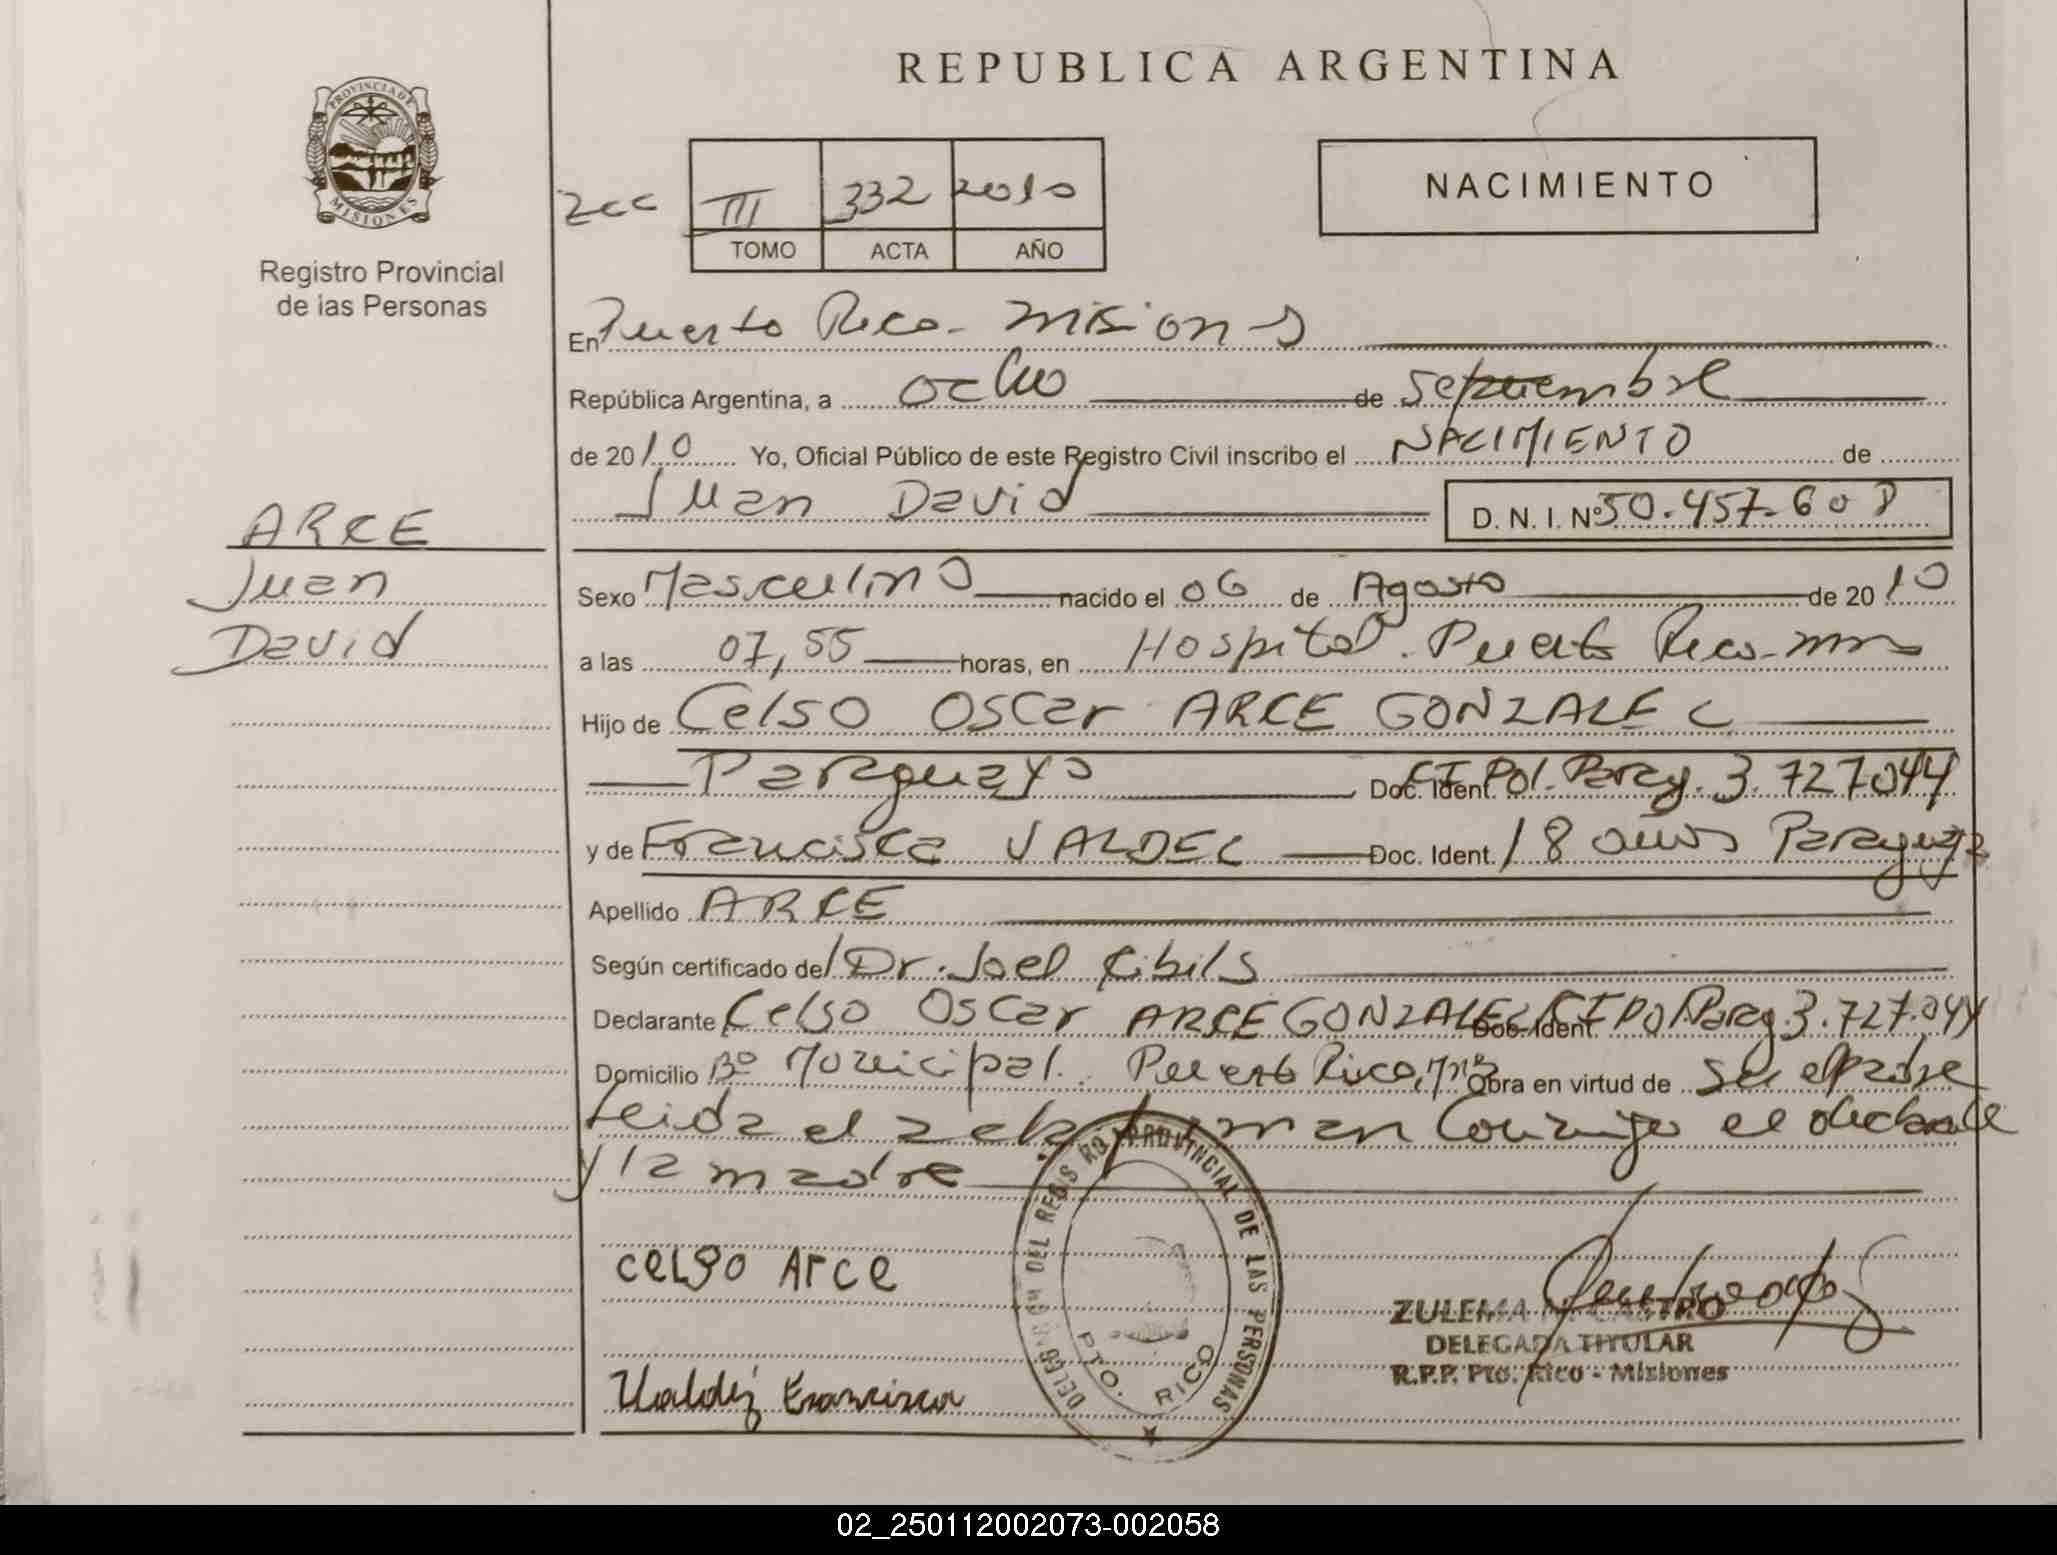 REPUBLICA ARGENTINA
PROVINCIA DE MISIONES
Registro Provincial
de las Personas
III 332 2010
TOMO ACTA AÑO
NACIMIENTO
En Puerto Rico - Misiones
República Argentina, a ocho de Septiembre
de 2010 Yo, Oficial Público de este Registro Civil inscribo el NACIMIENTO de
Juan David D. N. I. Nº 50.457.608
ARCE
Juan
David
Sexo Masculino nacido el 06 de Agosto de 2010
a las 07,55 horas, en Hospital. Puerto Rico - Mns
Hijo de Celso Oscar ARCE GONZALEZ
Paraguayo Doc. Ident. CI Pol. Parag. 3.727.044
y de Francisca VALDEZ Doc. Ident. 18 años Paraguaya
Apellido ARCE
Según certificado del Dr. Joel Cibils
Declarante Celso Oscar ARCE GONZALEZ Doc. Ident. CI Pol Parag. 3.727.044
Domicilio Bº Municipal. Puerto Rico, Mns Obra en virtud de ser el padre
Leida el acta firman conmigo el declarante
y la madre
CELSO ArCe
Valdéz Francisca
DELEGACION DEL REGISTRO PROVINCIAL DE LAS PERSONAS
PTO. RICO
ZULEMA CASTRO
DELEGADA TITULAR
R.P.P. Pto. Rico - Misiones
02_250112002073-002058